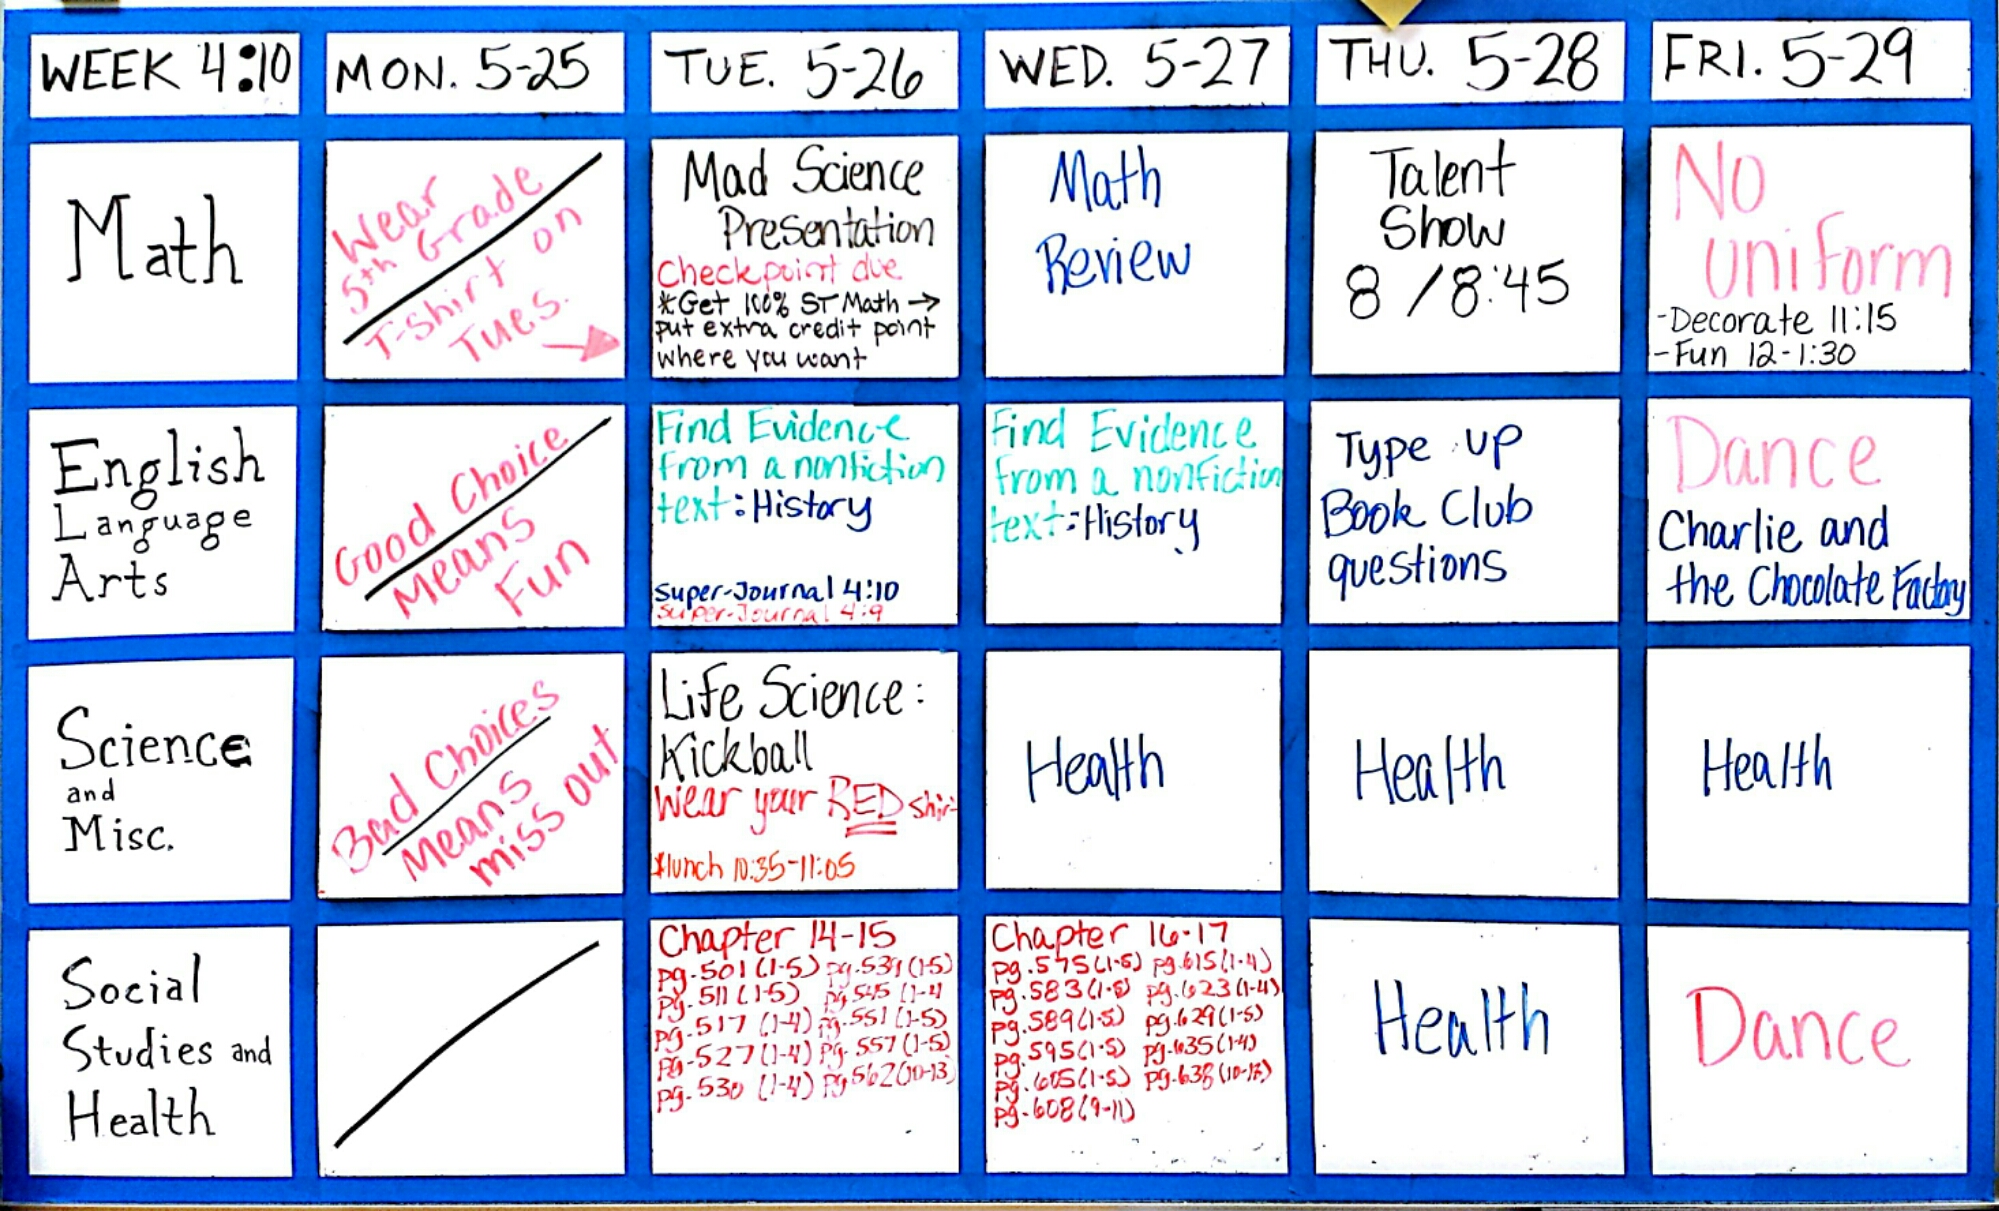 WEEK 4:10
MON. 5-25
TUE. 5-26
WED. 5-27
THU. 5-28
FRI. 5-29
Math
Wear
5th Grade
T-shirt on
Tues.
Mad Science
Presentation
Checkpoint due
*Get 100% ST Math →
put extra credit point
where you want
Math
Review
Talent
Show
8 / 8:45
No
uniform
-Decorate 11:15
-Fun 12-1:30
English
Language
Arts
Good Choice
Means
Fun
Find Evidence
from a nonfiction
text: History
Super-Journal 4:10
Super-Journal 4:9
Find Evidence
from a nonfiction
text: History
Type up
Book Club
questions
Dance
Charlie and
the Chocolate Factory
Science
and
Misc.
Bad Choices
Means
miss out
Life Science:
Kickball
Wear your RED shir
*lunch 10:35-11:05
Health
Health
Health
Social
Studies and
Health
Chapter 14-15
pg. 501 (1-5) pg. 539 (1-5)
pg. 511 (1-5) pg. 545 (1-4
pg. 517 (1-4) pg. 551 (1-5)
pg. 527 (1-4) pg. 557 (1-5)
pg. 530 (1-4) pg 562 (10-13)
Chapter 16-17
pg. 575 (1-5) pg. 615 (1-4)
pg. 583 (1-5) pg. 623 (1-4)
pg. 589 (1-5) pg. 629 (1-5)
pg. 595 (1-5) pg. 635 (1-4)
pg. 605 (1-5) pg. 638
pg. 608 (9-11)
Health
Dance